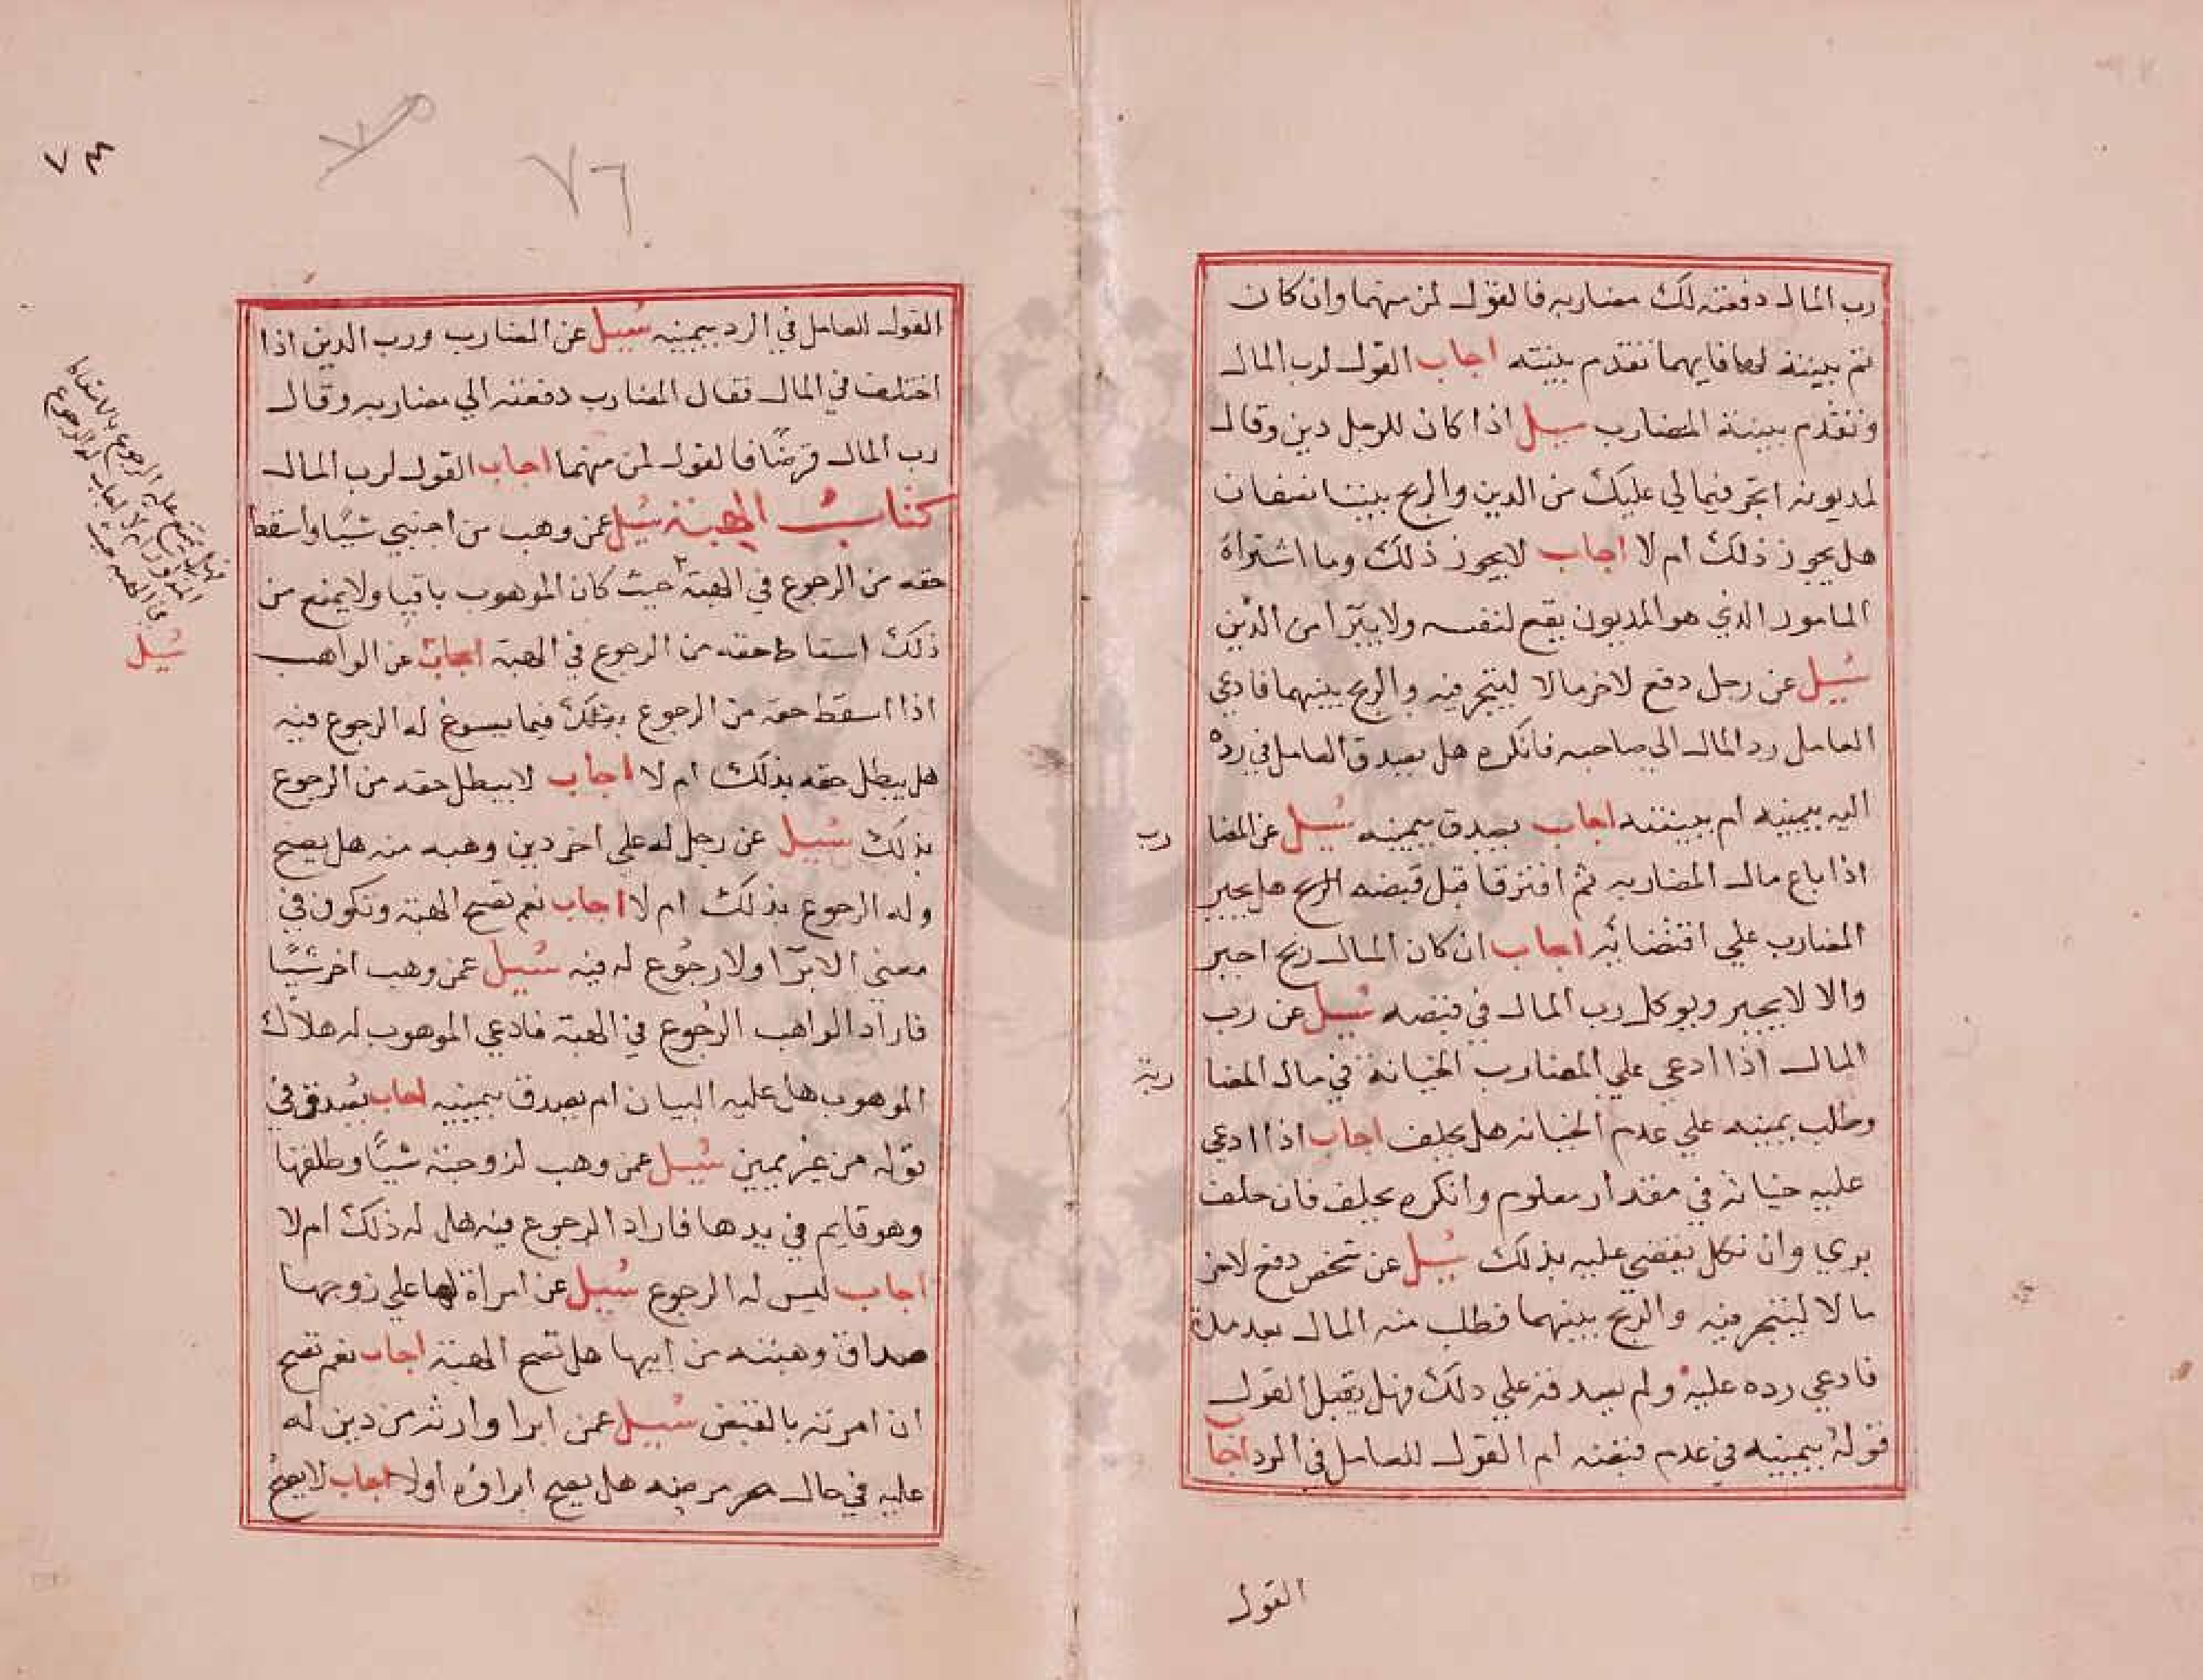 رب المال دفعته لك مضاربه فالقول لمن منهما وان كان
ثم بينة لهما فايهما تقدم بينته اجاب القول لرب المال
وتقدم بينة المضارب سيل اذا كان للرجل دين وقال
لمديونه اتجر فيما لي عليك من الدين والربح بيننا نصفان
هل يجوز ذلك ام لا اجاب لا يجوز ذلك وما اشتراه
المامور الذي هو المديون يقع لنفسه ولا يبرا من الدين
سيل عن رجل دفع لاخر مالا ليتجر فيه والربح بينهما فادعي
العامل رد المال الي صاحبه فانكره هل يصدق العامل في رده
اليه بيمينه ام ببينته اجاب يصدق بيمينه سيل عن المضا
رب
اذا باع مال المضاربه ثم افترقا قبل قبضه الربح هل يجبر
المضارب علي اقتضائه اجاب ان كان المال ربح اجبر
والا لا يجبر ويوكل رب المال في قبضه سيل عن رب
المال اذا ادعي علي المضارب الخيانة في مال المضا
ربة
وطلب يمينه علي عدم الخيانه هل يحلف اجاب اذا ادعي
عليه خيانه في مقدار معلوم وانكره يحلف فان حلف
بري وان نكل يقضي عليه بذلك سيل عن شخص دفع لاخر
مالا ليتجر فيه والربح بينهما فطلب منه المال بعد مدة
فادعي رده عليه ولم يصدقه علي ذلك فهل يقبل القول
قوله بيمينه في عدم قبضه ام القول للعامل في الرد اجاب
القول
٧٣
٧٦
القول للعامل في الرد بيمينه سيل عن المضارب ورب الدين اذا
اختلف في المال فقال المضارب دفعته الي مضاربه وقال
رب المال قرضا فالقول لمن منهما اجاب القول لرب المال
كتاب الهبة سيل عمن وهب من اجنبي شيا واسقط
حقه من الرجوع في الهبة حيث كان الموهوب باقيا ولا يمنع من
ذلك اسقاط حقه من الرجوع في الهبة اجاب عن الواهب
اذا اسقط حقه من الرجوع فيما يسوغ له الرجوع فيه
هل يبطل حقه بذلك ام لا اجاب لا يبطل حقه من الرجوع
بذلك سيل عن رجل له علي اخر دين وهبه منه هل يصح
وله الرجوع بذلك ام لا اجاب نعم تصح الهبة وتكون في
معني الابرا ولا رجوع له فيه سيل عمن وهب اخر شيا
فاراد الواهب الرجوع في الهبة فادعي الموهوب له هلاك
الموهوب هل عليه البيان ام يصدق بيمينه اجاب يصدق في
قوله من غير يمين سيل عمن وهب لزوجته شيا وطلقها
وهو قايم في يدها فاراد الرجوع فيه هل له ذلك ام لا
اجاب ليس له الرجوع سيل عن امراة لها علي زوجها
صداق وهبته من ابيها هل تصح الهبة اجاب نعم تصح
ان امرته بالقبض سيل عمن ابرا وارثه من دين له
عليه في حال مرضه هل يصح ابراوه اولا اجاب لا يصح
سيل